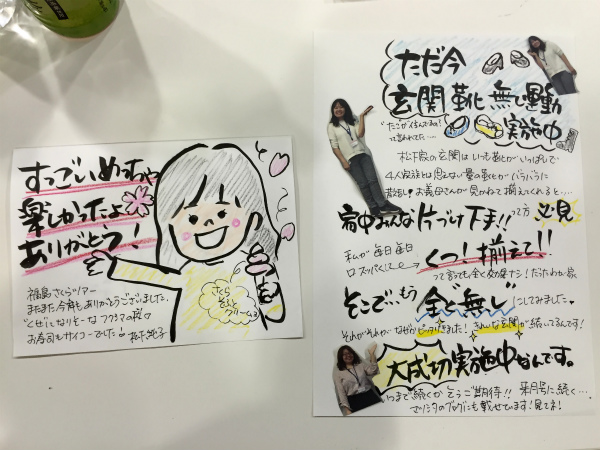 すっごいめっちゃ
楽しかったよ
ありがとう!
さくら
福島さくらツアー
またまた今年もありがとうございました。
くせになりそーなフクシマの桜
お寿司もサイコーでした!
ただ今
玄関靴無し運動
実施中
って言われてた…
松下家の玄関はいつも靴がいっぱいで
4人家族とは思えない量の靴がバラバラに
お義母さんが見かねて揃えてくれると…
家中みんな片づけ下手!!って方必見
私が毎日毎日
口スッパく
くつ!揃えて!!
って言っても全く効果ナシ!
そこで…もう全ど無しにしてみました
それがなぜかピッタリきました!きれいな玄関が続いてるんです!
大成功実施中なんです。
いつまで続くかどうご期待!!来月号に続く…
マツシタのブログにも載せています!見てネ!